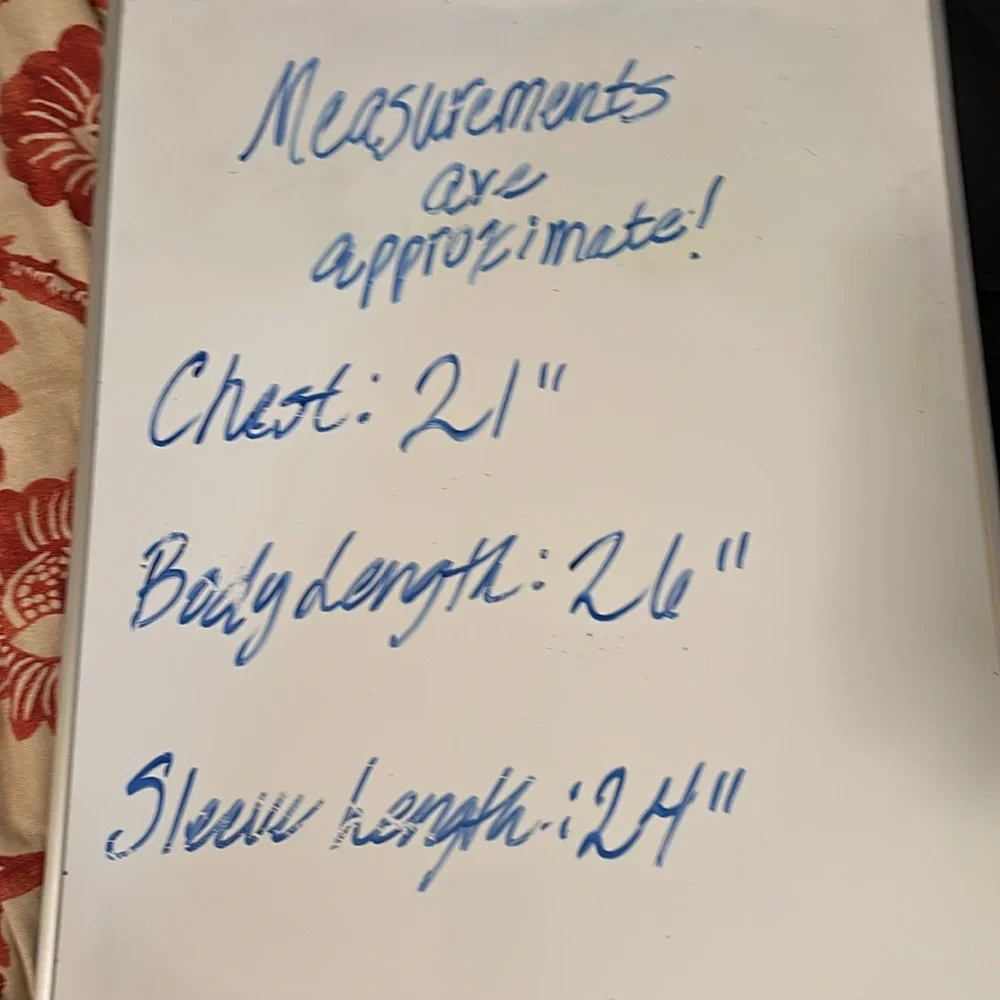 Measurements
are
approximate!
Chest: 21"
Body Length: 26"
Sleeve Length: 24"